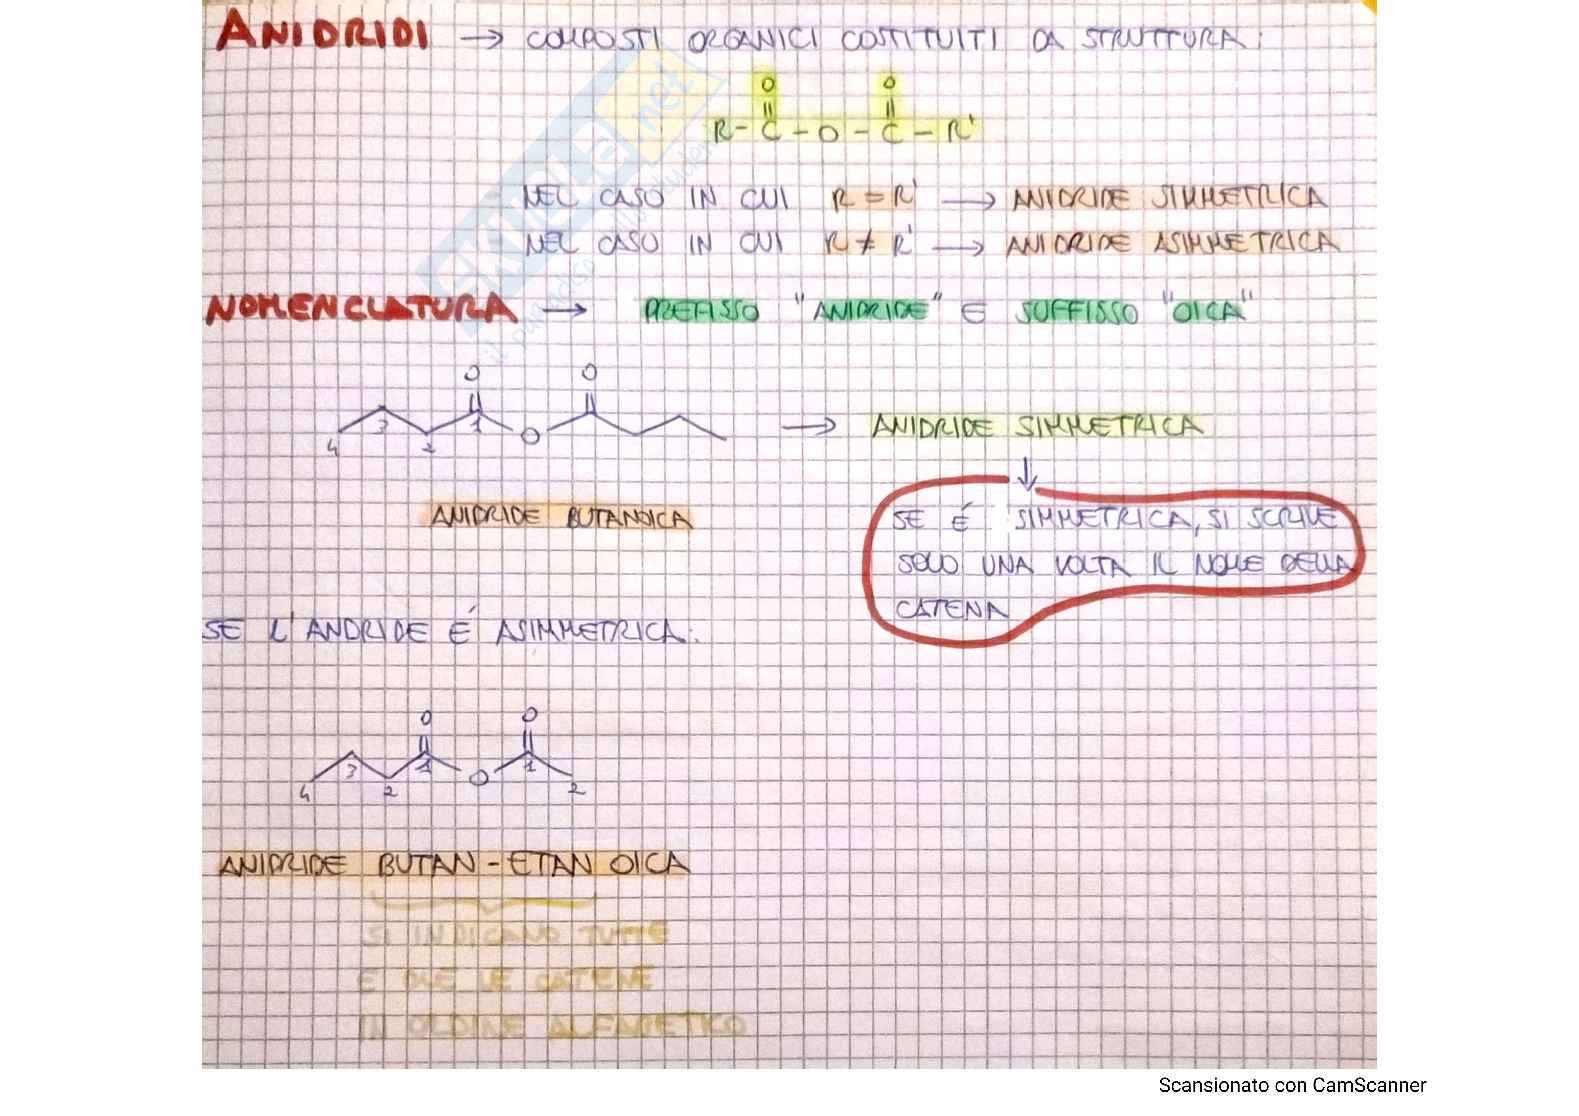 ANIDRIDI → COMPOSTI ORGANICI COSTITUITI DA STRUTTURA:
O O
R - C - O - C - R'
NEL CASO IN CUI R = R' → ANIDRIDE SIMMETRICA
NEL CASO IN CUI R ≠ R' → ANIDRIDE ASIMMETRICA
NOMENCLATURA → PREFISSO "ANIDRIDE" E SUFFISSO "OICA"
O O
4 3 2 1 O → ANIDRIDE SIMMETRICA
↓
ANIDRIDE BUTANOICA
SE É SIMMETRICA, SI SCRIVE
SOLO UNA VOLTA IL NOME DELLA
CATENA
SE L'ANDRIDE É ASIMMETRICA:
O O
4 3 2 1 O 1 2
ANIDRIDE BUTAN - ETAN OICA
SI INDICANO TUTTE
E DUE LE CATENE
IN ORDINE ALFABETICO
SKUOLA.net
il paradiso dello studente
Scansionato con CamScanner